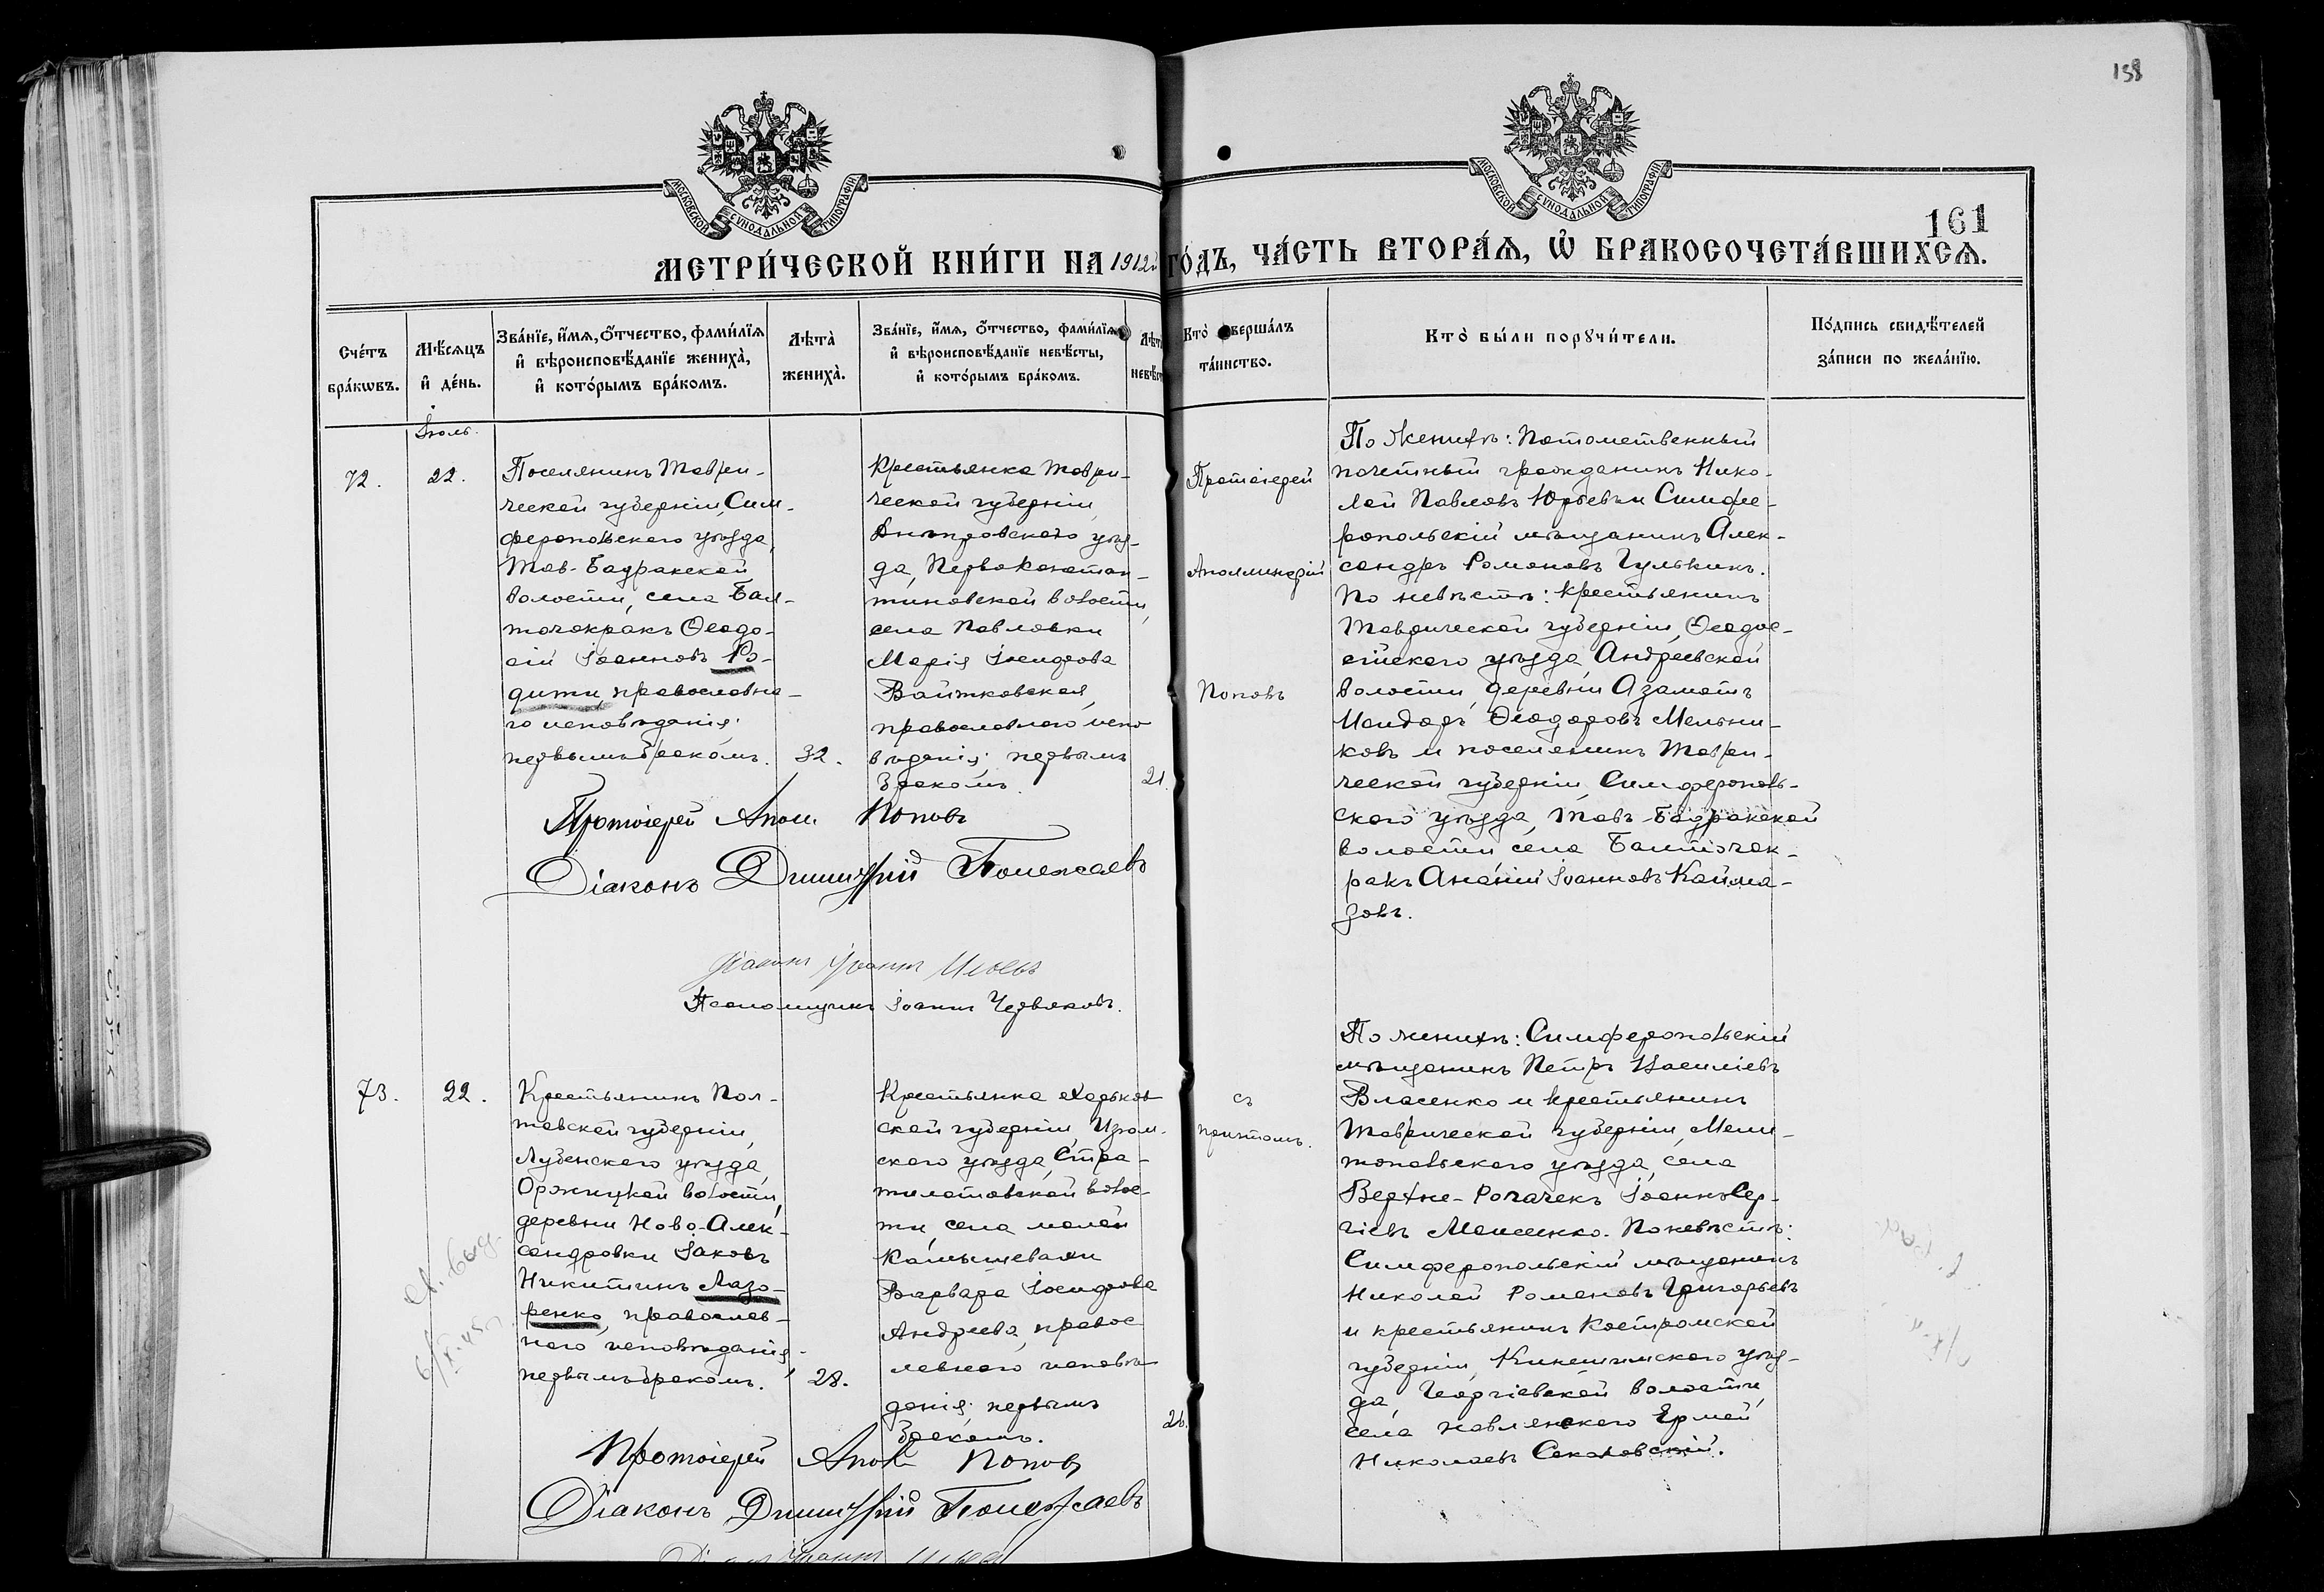 158
МОСКОВСКОЙ СѴНОДАЛЬНОЙ ТИПОГРАФІИ
МОСКОВСКОЙ СѴНОДАЛЬНОЙ ТИПОГРАФІИ
161
МЕТРИ́ЧЕСКОЙ КНИ́ГИ НА 1912 ГО́ДЪ, ЧА́СТЬ ВТОРА́Ѧ, Ѡ҆ БРАКОСОЧЕТА́ВШИХСѦ.
Сче́тъ
бра́кѡвъ.
Мѣ́сѧцъ
и҆ де́нь.
Зва́нїе, и҆́мѧ, ѻ҆́тчество, фами́лїѧ
и҆ вѣроисповѣ́данїе жениха̀,
и҆ кото́рымъ бра́комъ.
Лѣта̀
жениха̀.
Зва́нїе, и҆́мѧ, ѻ҆́тчество, фами́лїѧ
и҆ вѣроисповѣ́данїе невѣ́сты,
и҆ кото́рымъ бра́комъ.
Лѣта̀
невѣ́ст
Кто̀ совершалъ
та́инство.
Кто̀ бы́ли порꙋчи́тели.
По́дпись свидѣ́телей
за́писи по жела́нїю.
Іюль.
72.
22.
Поселянинъ Таври-
ческой губерніи, Сим-
феропольскаго уѣзда,
Тав-Бадракской
волости, села Бал-
точокракъ Ѳеодо-
сій Іоанновъ Ро-
дити, православна-
го исповѣданія;
первымъ бракомъ.
32.
Крестьянка Таври-
ческой губерніи,
Днѣпровскаго уѣз-
да, Первоконстан-
тиновской волости,
села Павловки
Марія Іосифова
Войтковская,
православнаго испо
вѣданія; первымъ
бракомъ.
21.
Протоіерей
Аполлинарій
Поповъ
По женихѣ: Потомственный
почетный гражданинъ Нико-
лай Павловъ Юрьевъ и Симфе-
ропольскій мѣщанинъ Алек-
сандръ Романовъ Гулькинъ.
По невѣстѣ: крестьянинъ
Таврической губерніи, Ѳеодос-
ійскаго уѣзда, Андреевской
волости, деревни Азаматъ
Исидоръ Ѳеодоровъ Мельни-
ковъ и поселянинъ Таври-
ческой губерніи, Симферополь-
скаго уѣзда, Тавъ-Бадракской
волости села Балточок-
ракъ Ананій Іоанновъ Кайма-
зовъ.
Протоіерей Апол. Поповъ
Діаконъ Димитрій Полежаевъ
Діаконъ Іоаннъ
Псаломщикъ Іоаннъ Червяковъ.
73.
22.
Крестьянинъ Пол-
тавской губерніи,
Лубенскаго уѣзда,
Оржицкой волости,
деревни Ново-Алек-
сандровки Іаковъ
Никитинъ Лазо-
ренко, православ-
наго исповѣданія;
первымъ бракомъ.
28.
Крестьянка Харьков
ской губерніи, Изюм-
скаго уѣзда, Стра-
тилатовской волос-
ти, села малой
Камышевахи
Варвара Іосифова
Андреева, правос
лавнаго исповѣ
данія; первымъ
бракомъ.
съ
причтомъ.
По женихѣ: Симферопольскій
мѣщанинъ Петръ Василіевъ
Власенко и крестьянинъ
Таврической губерніи, Мели-
топольскаго уѣзда, села
Верхне-Рогачекъ Іоаннъ Сер-
гіевъ Моисеенко. По невѣстѣ:
Симферопольскій мѣщанинъ
Николай Романовъ Григорьевъ
и крестьянинъ Костромской
губерніи, Кинешимскаго уѣз-
да, Георгіевской волости,
села Ермей
Николаевъ Соколовскій.
Протоіерей Апол Поповъ
Діаконъ Димитрій Полежаевъ